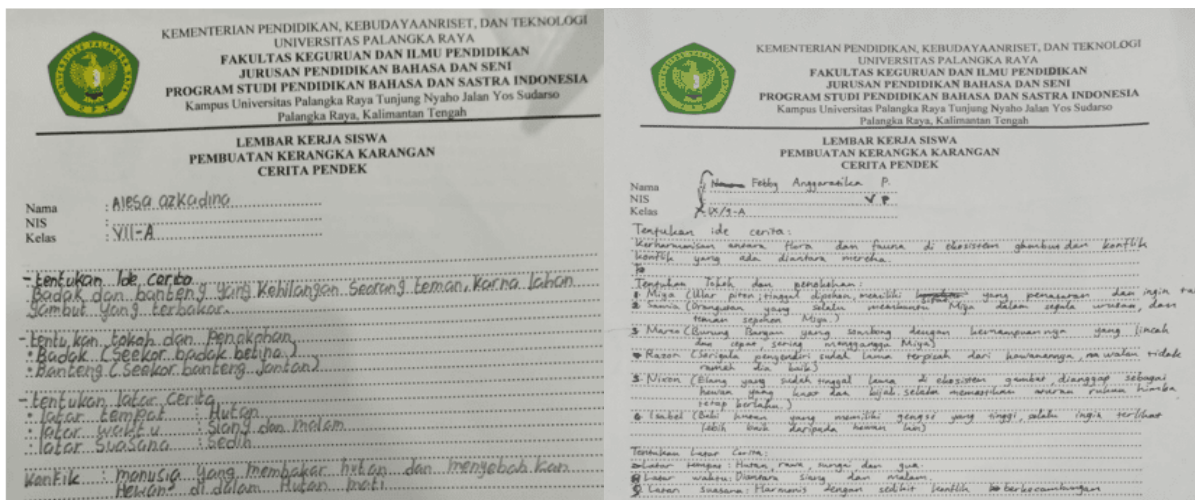 KEMENTERIAN PENDIDIKAN, KEBUDAYAANRISET, DAN TEKNOLOGI
UNIVERSITAS PALANGKA RAYA
FAKULTAS KEGURUAN DAN ILMU PENDIDIKAN
JURUSAN PENDIDIKAN BAHASA DAN SENI
PROGRAM STUDI PENDIDIKAN BAHASA DAN SASTRA INDONESIA
Kampus Universitas Palangka Raya Tunjung Nyaho Jalan Yos Sudarso
Palangka Raya, Kalimantan Tengah
LEMBAR KERJA SISWA
PEMBUATAN KERANGKA KARANGAN
CERITA PENDEK
Nama : Alesa azkadina
NIS :
Kelas : VII-A
- tentukan Ide cerita
Badak dan banteng yang kehilangan seorang teman, karna lahan
gambut yang terbakar.
- tentukan tokoh dan Penokohan
• Badak (Seekor badak betina)
• Banteng (Seekor banteng jantan)
- tentukan latar cerita
• latar tempat : Hutan
• latar waktu : Siang dan malam
• latar Suasana : Sedih
Konflik : manusia yang membakar hutan dan menyebabkan
Hewan di dalam Hutan mati
KEMENTERIAN PENDIDIKAN, KEBUDAYAANRISET, DAN TEKNOLOGI
UNIVERSITAS PALANGKA RAYA
FAKULTAS KEGURUAN DAN ILMU PENDIDIKAN
JURUSAN PENDIDIKAN BAHASA DAN SENI
PROGRAM STUDI PENDIDIKAN BAHASA DAN SASTRA INDONESIA
Kampus Universitas Palangka Raya Tunjung Nyaho Jalan Yos Sudarso
Palangka Raya, Kalimantan Tengah
LEMBAR KERJA SISWA
PEMBUATAN KERANGKA KARANGAN
CERITA PENDEK
Nama Febby Anggaratika P.
NIS VP
Kelas IX/9-A
Tentukan ide cerita:
Keharmonisan antara flora dan fauna di ekosistem gambut dan konflik
konflik yang ada diantara mereka.
Tentukan Tokoh dan penokohan:
1 Miya (Ular piton, tinggal dipohon, memiliki yang penasaran dan ingin
2 Samia (Orangutan yang selalu membantu Miya dalam segala urusan, dan
teman sepohon Miya.)
3 Marsa (Burung yang sombong dengan kemampuannya yang lincah
dan cepat, sering mengganggu Miya)
Razor (Serigala penyendiri sudah lama terpisah dari kawanannya, walau tidak
ramah dia baik)
Nixon (Elang yang sudah tinggal lama di ekosistem gambut, dianggap sebagai
hewan yang kuat dan bijak. selalu memastikan aturan rukun rimba
tetap berlaku.)
6 Isabel (Babi hutan yang memiliki gengsi yang tinggi, selalu ingin terlihat
lebih baik daripada hewan lain)
Tentukan Latar Cerita:
Latar tempat: Hutan, rawa, sungai dan gua.
Latar waktu: Diantara siang dan malam.
Latar suasana: Harmonis dengan sedikit konflik berkecambungan